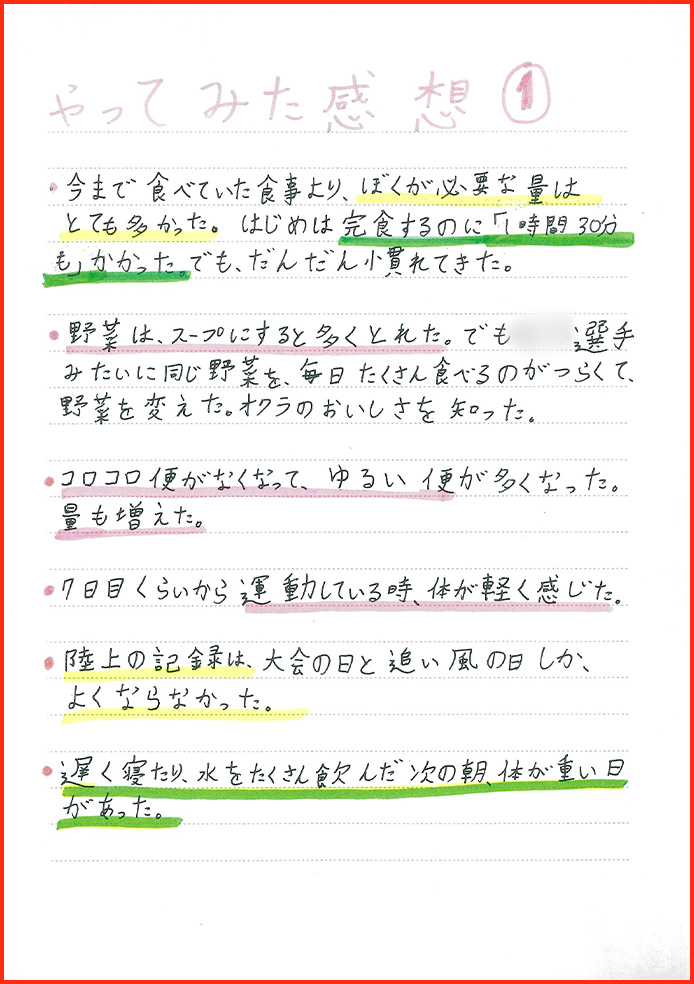 やってみた感想①
・今まで食べていた食事より、ぼくが必要な量は
とても多かった。はじめは完食するのに「1時間30分
も」かかった。でも、だんだん小貫れてきた。
・野菜は、スープにすると多くとれた。でも 選手
みたいに同じ野菜を、毎日たくさん食べるのがつらくて、
野菜を変えた。オクラのおいしさを知った。
・コロコロ便がなくなって、ゆるい便が多くなった。
量も増えた。
・7日目くらいから運動している時、体が軽く感じた。
・陸上の記録は、大会の日と追い風の日しか、
よくならなかった。
・遅く寝たり、水をたくさん飲んだ次の朝、体が重い日
があった。